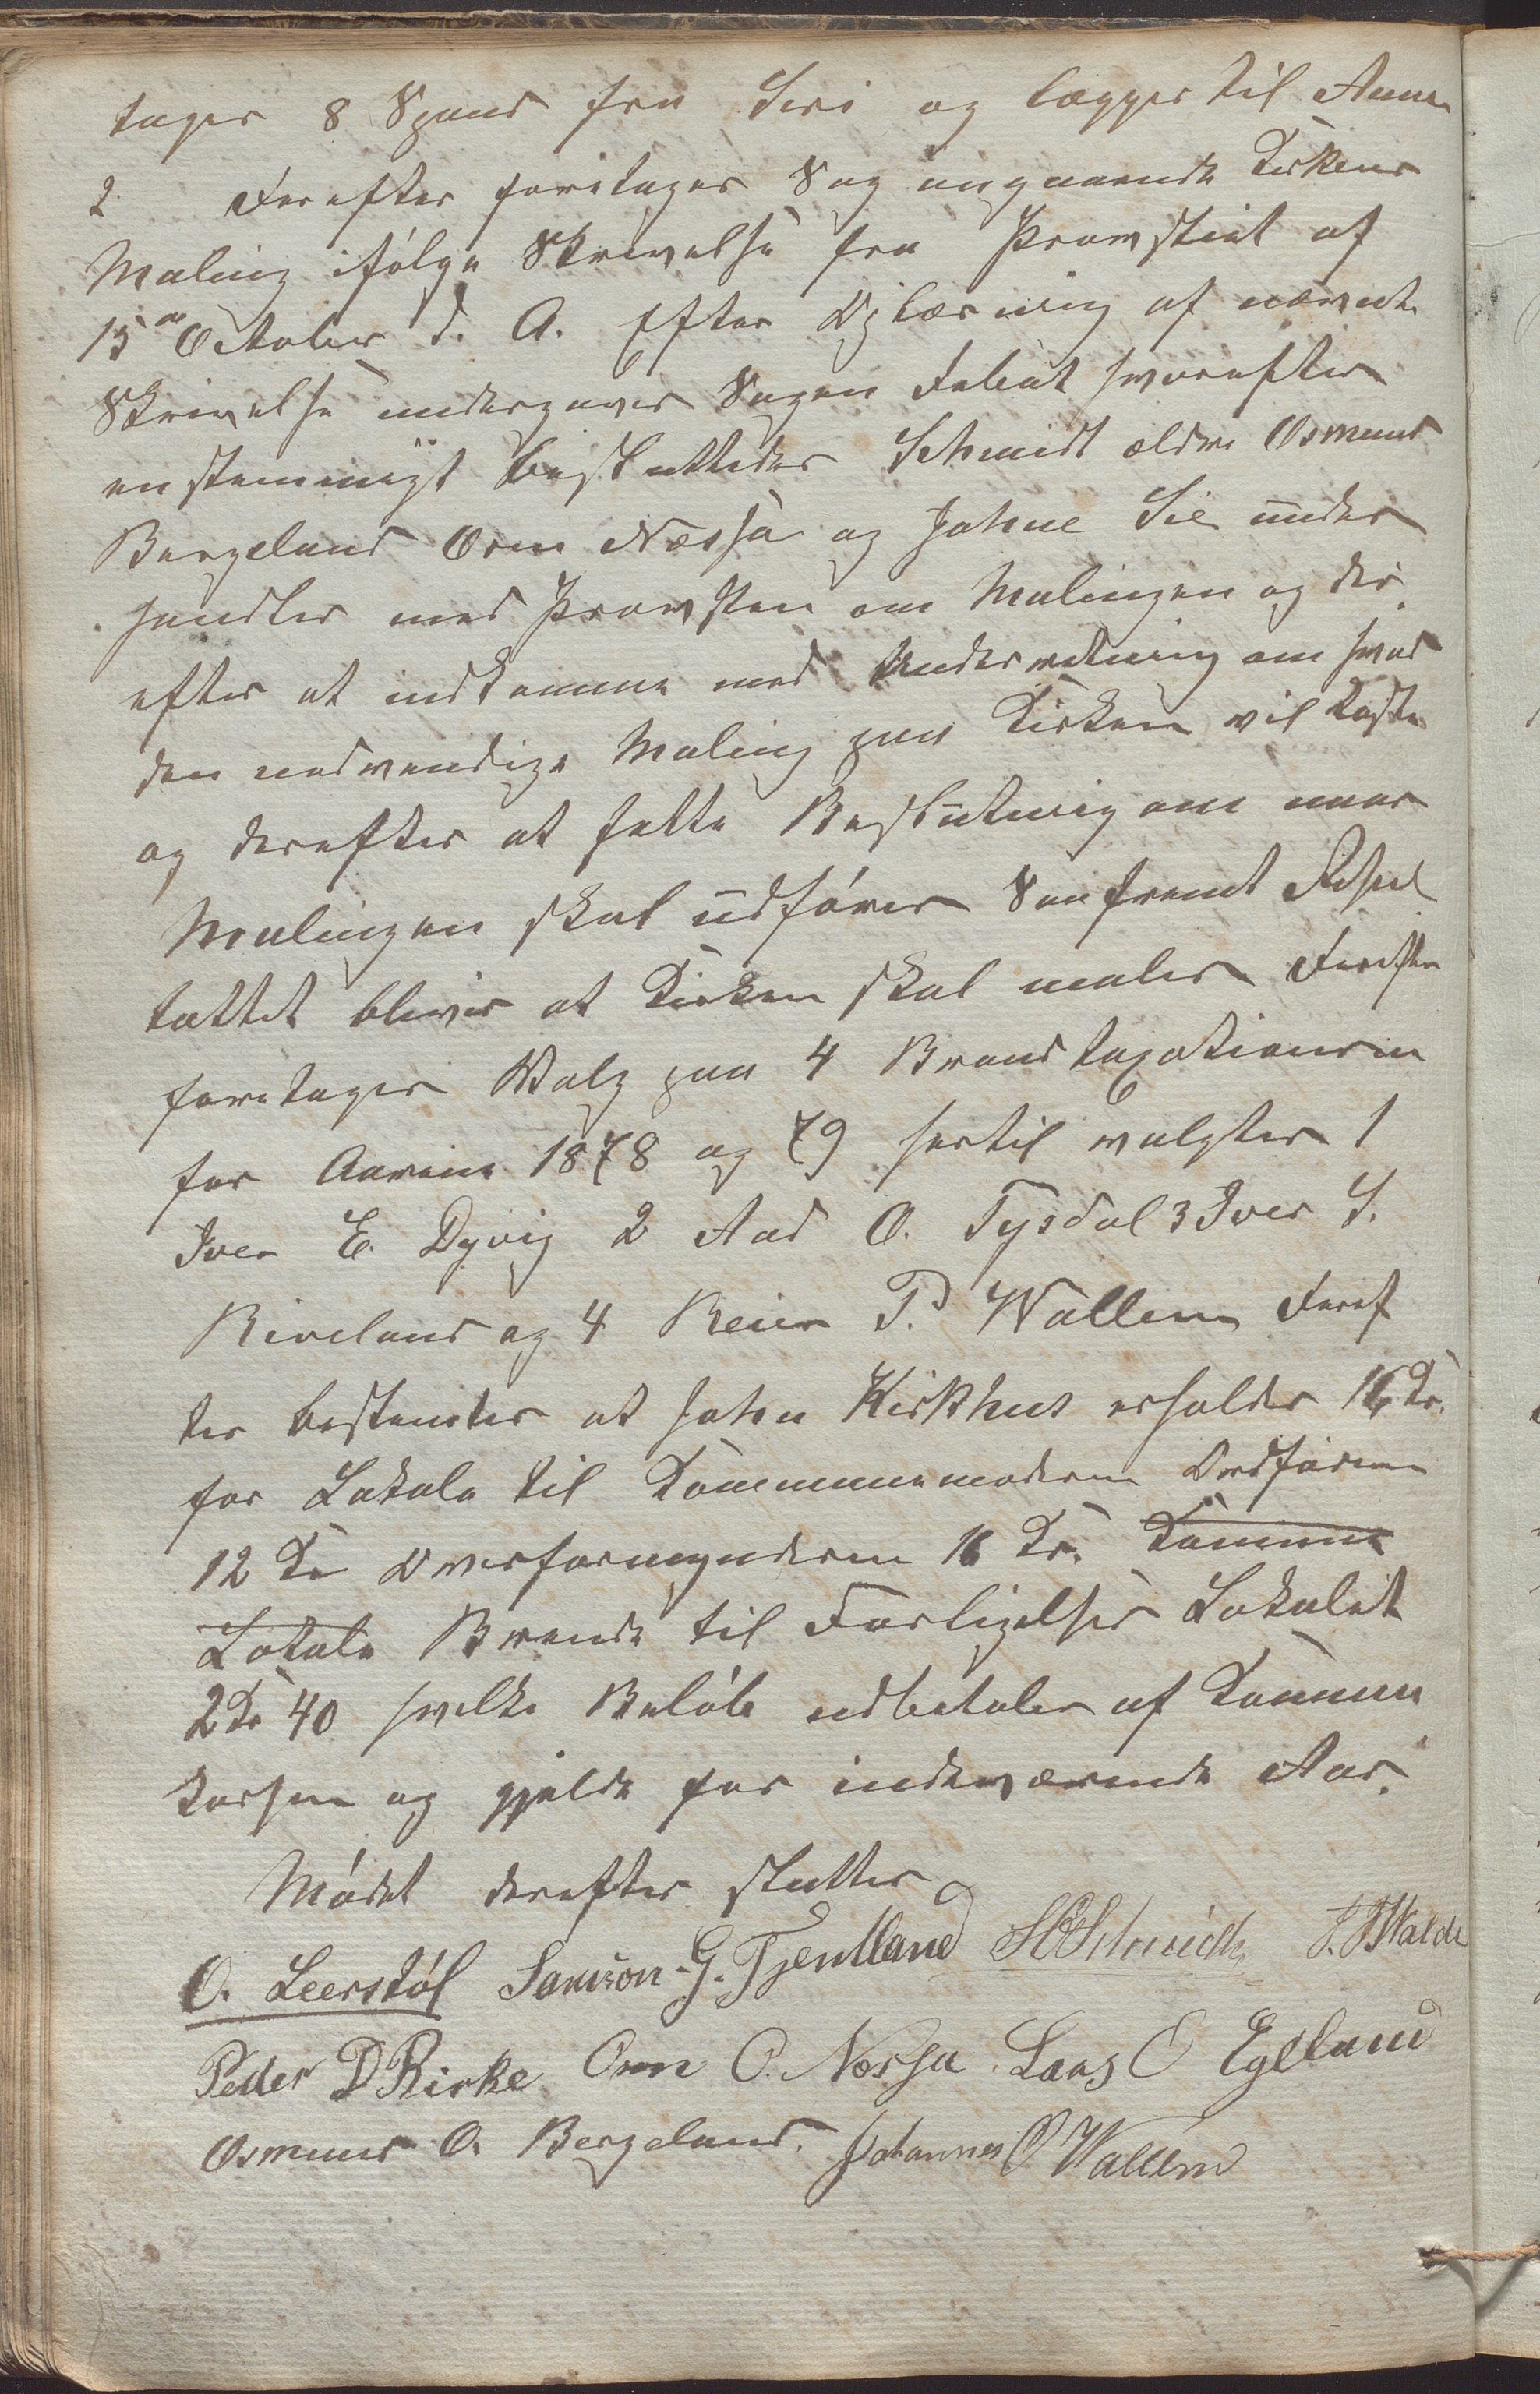 tages 8 Spand fra Siri og lægges til Anna
2. Derefter foretages Sag angaaende Kirkens
Maling ifølge Skrivelse fra Provstiet af
15de October d. A. Efter Oplæsning af nævnte
Skrivelse undergaves Sagen Debat hvorefter
enstemmigt besluttedes Schmidt ældre Osmund
Bergeland Orm Næssa og Johne Lie under
handler med Provsten om Malingen og der
efter at indkomme med Underretning om hvad
den nødvendige Maling paa Kirken vil koste
og derefter at fatte Beslutning om naar
Malingen skal udføres Saafremt Resul
tattet bliver at Kirken skal males Derefter
foretages Valg paa 4 Brandtaxationsm
for Aarene 1878 og 79 hertil valgtes 1
Iver E. Dyvig 2 Aad O. Tysdal 3 Iver S.
Riveland og 4 Reier P. Wallem Deref
ter bestemtes at John Kirkhus erholder 16 Kr.
for Lokale til Kommunemøderne Ordføreren
12 Kr Overformynderen 16 Kr. Kommune
Lokale Brende til Forligelses Lokalet
2 Kr 40 hvilke Beløb udbetales af Kommun
kassen og gjelde for indeværende Aar.
Mødet derefter sluttes
O. Leerstøl Samson G. Tjentland Schmidt J. Walde
Peder D Kirke Orm O. Nessa Lars O Egeland
Osmund O. Bergeland. Johannes O Wallem